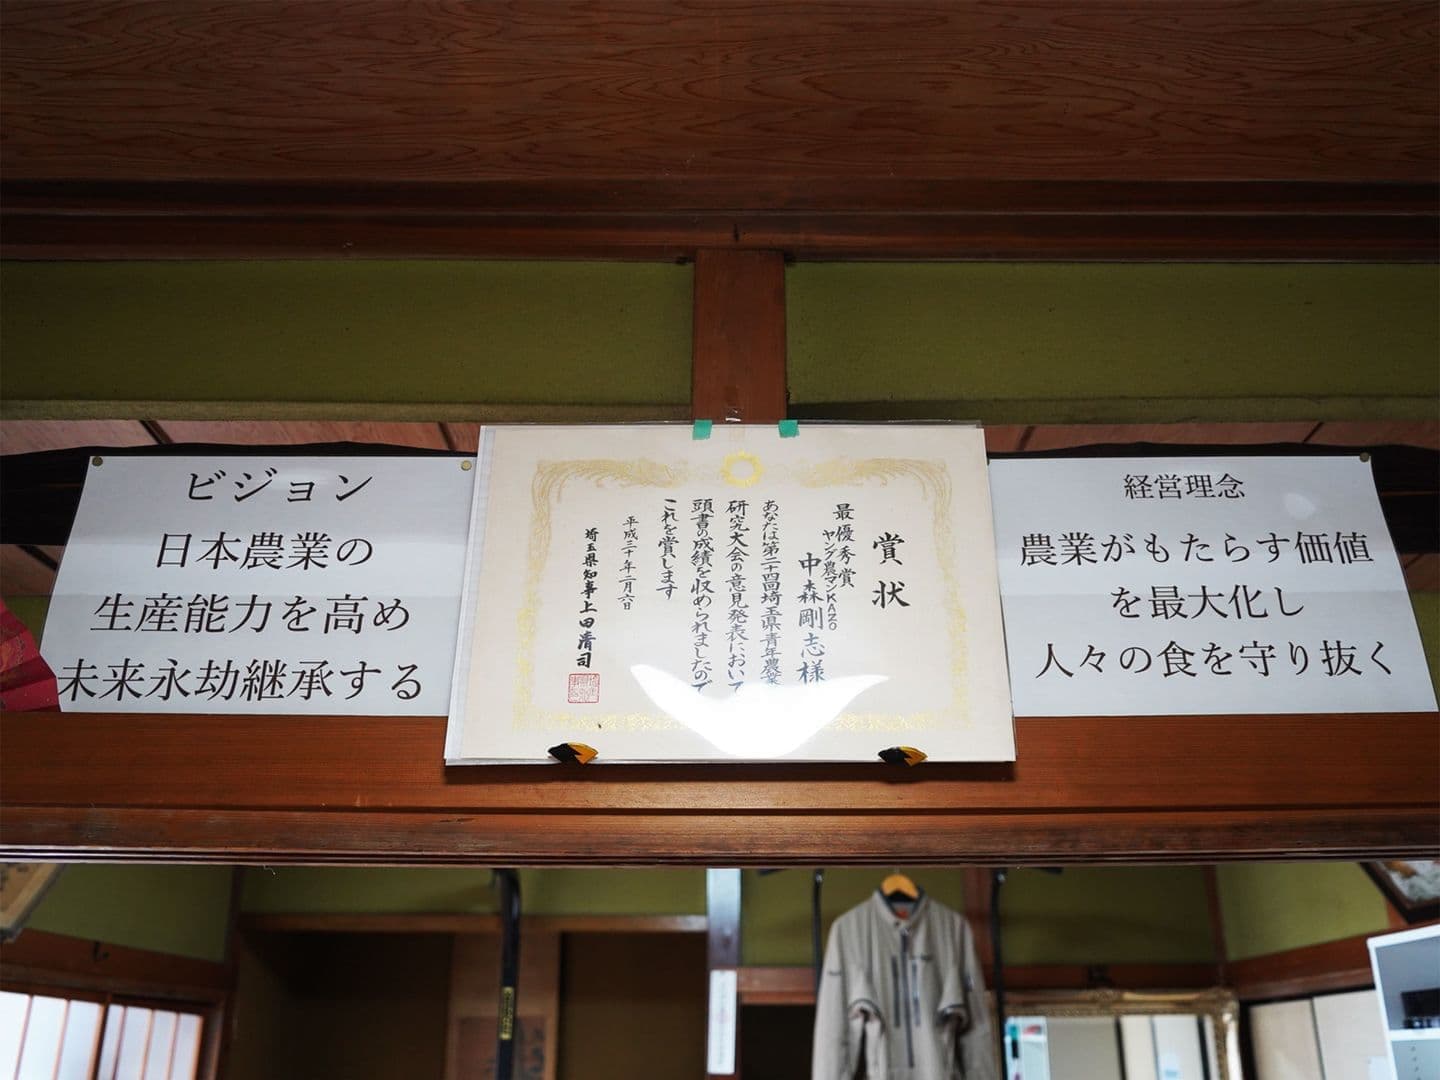 ビジョン
日本農業の
生産能力を高め
未来永劫継承する
賞状
最優秀賞
ヤング農マンKAZO
中森剛志様
あなたは第二十四回埼玉県青年農業
研究大会の意見発表において
頭書の成績を収められましたので
これを賞します
平成三十年二月六日
埼玉県知事上田清司
経営理念
農業がもたらす価値
を最大化し
人々の食を守り抜く